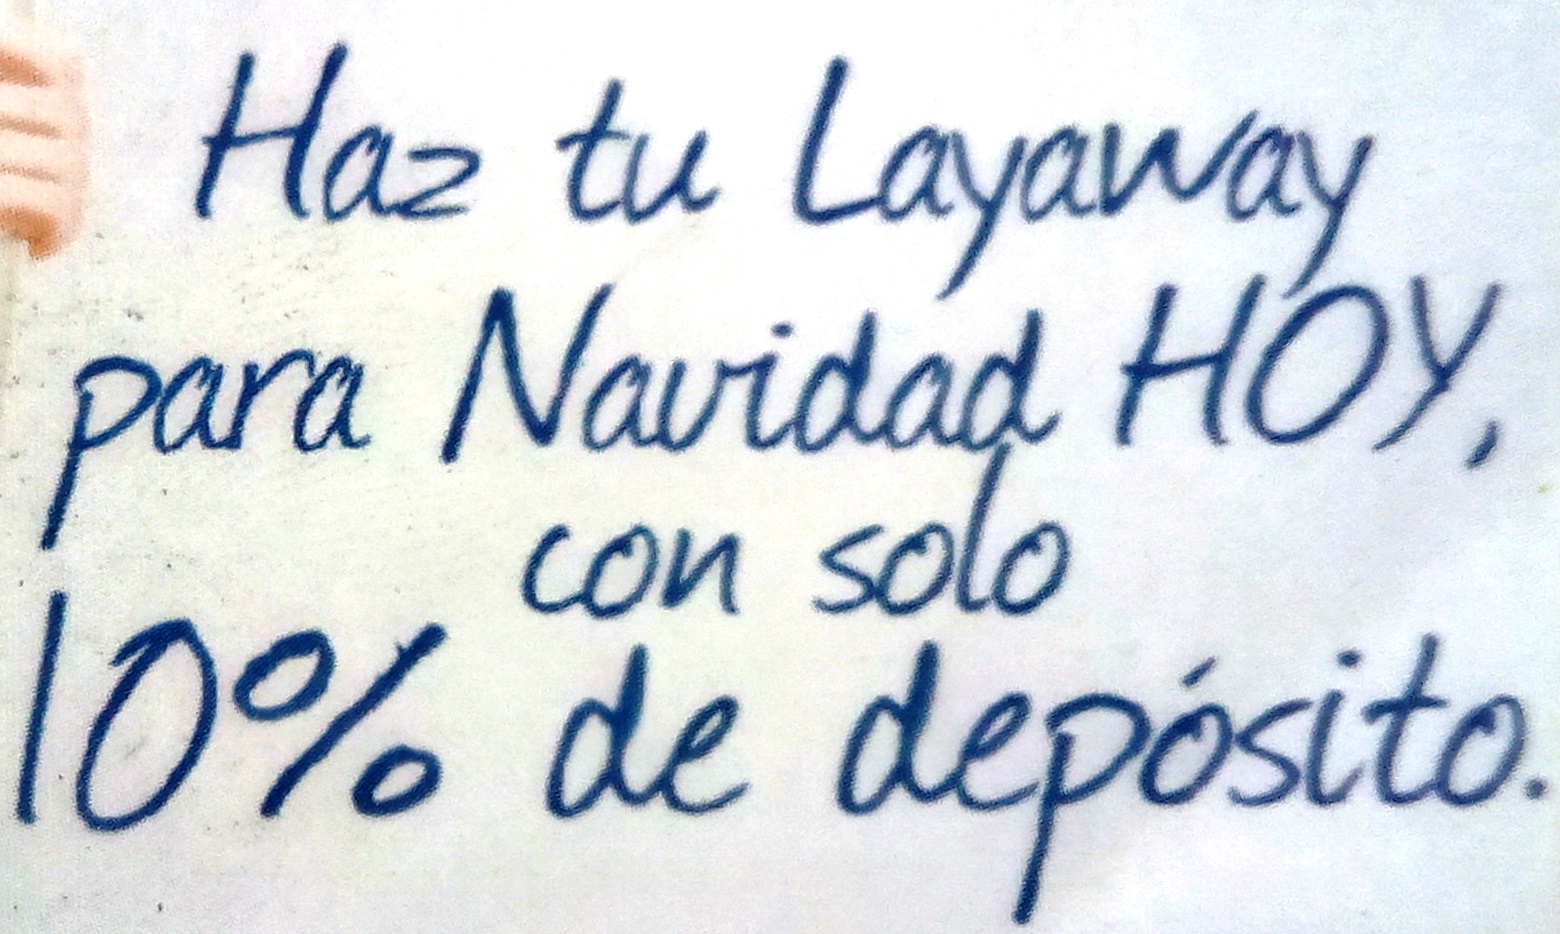 Haz tu Layaway
para Navidad HOY,
con solo
10% de depósito.